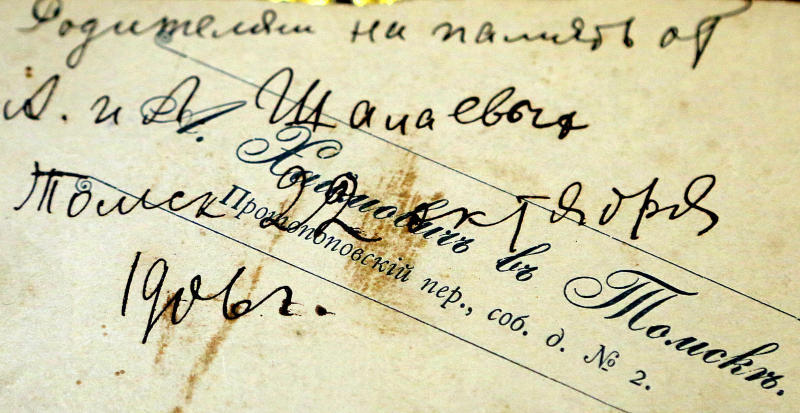 Родителям на память от
А. и А. Шалаевых
Томск 22 октября
1906 г.
въ Томскѣ.
Протопоповскій пер., соб. д. № 2.